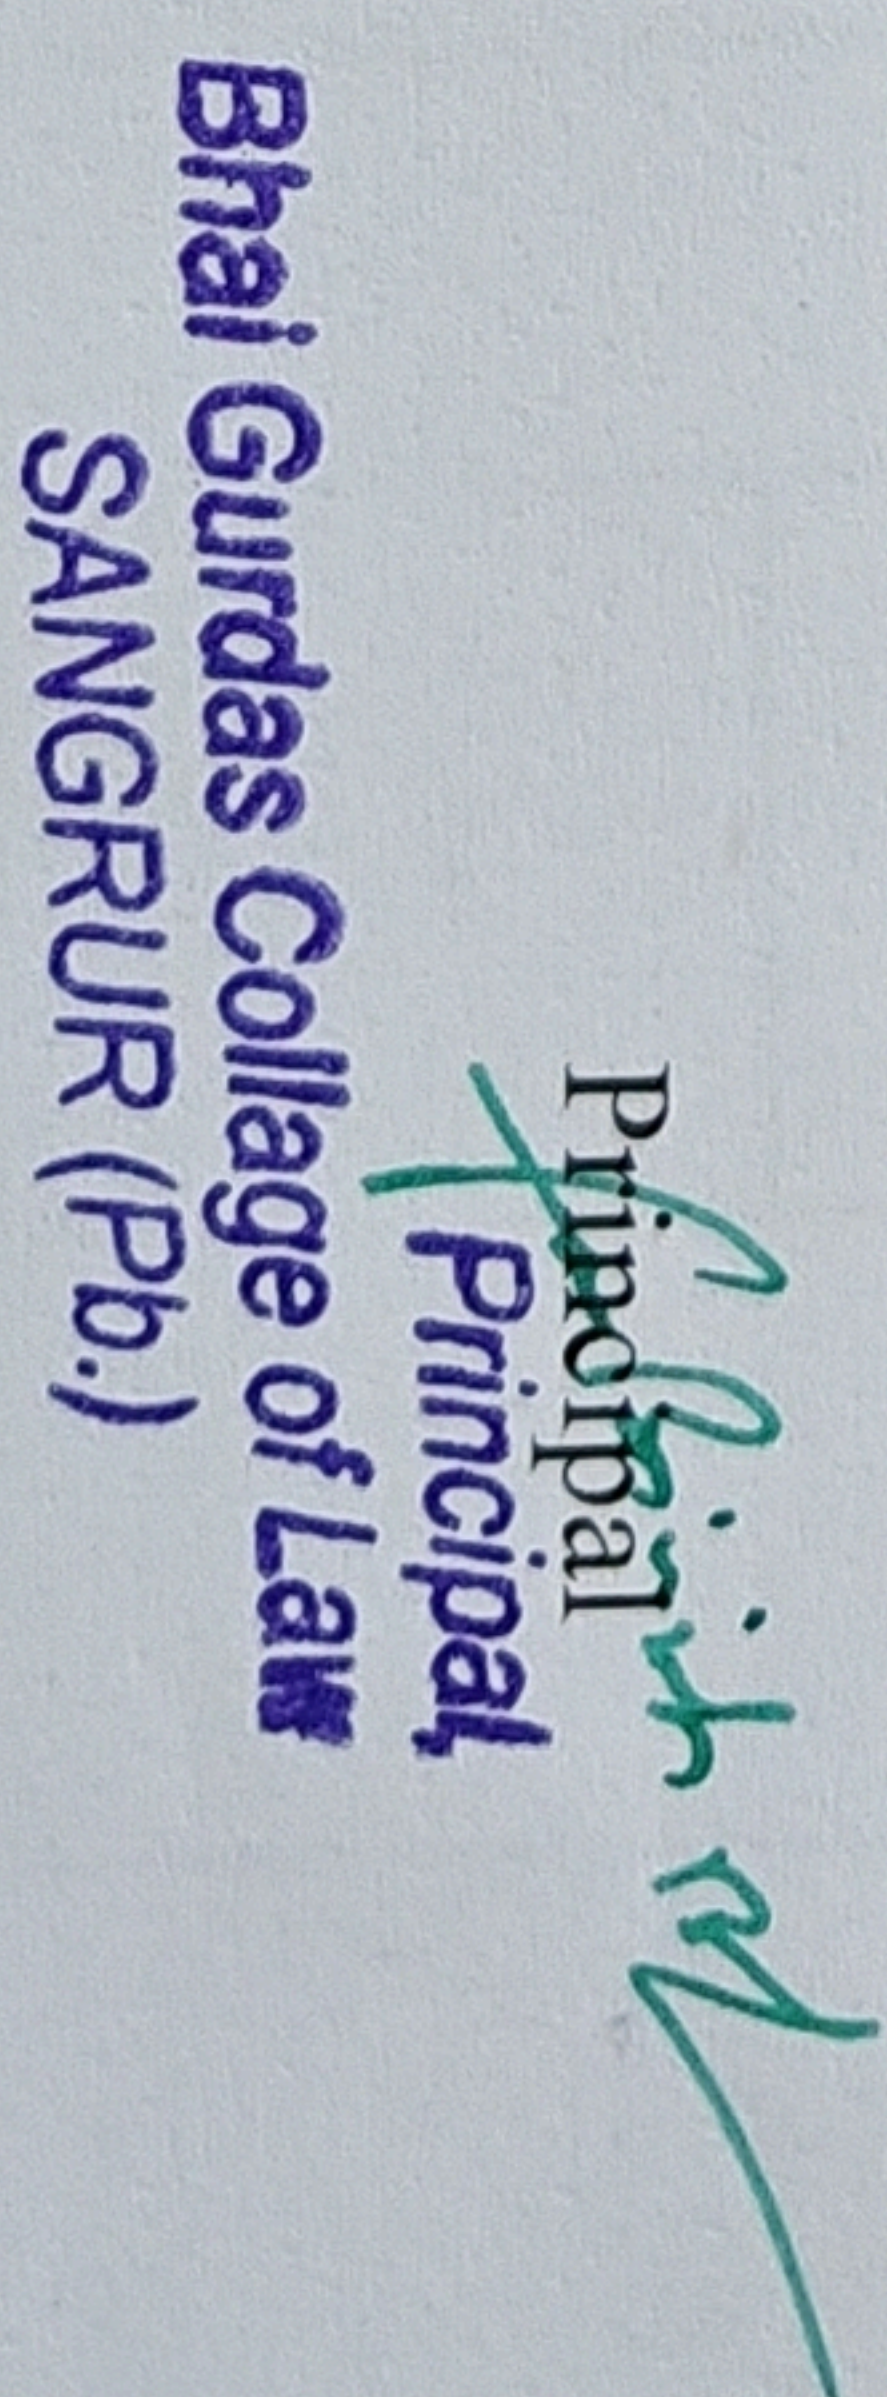 Principal
Principal,
Bhai Gurdas Collage of Law
SANGRUR (Pb.)